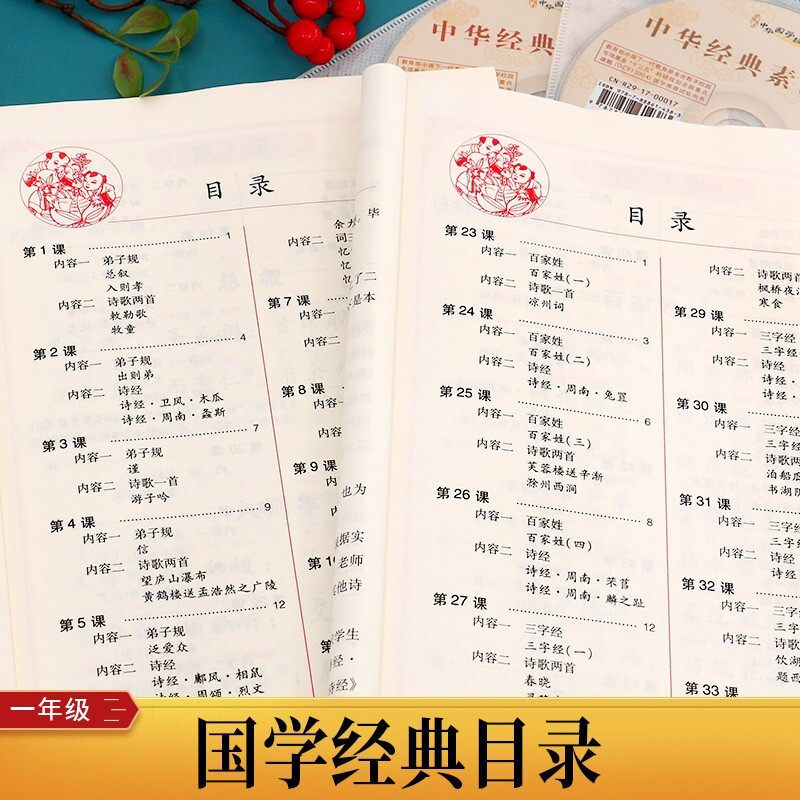 中华经典
中华经典素
CN-R29-17-00017
目录
第1课 1
内容一 弟子规
总叙
入则孝
内容二 诗歌两首
敕勒歌
牧童
第2课 4
内容一 弟子规
出则弟
内容二 诗经
诗经·卫风·木瓜
诗经·周南·螽斯
第3课 7
内容一 弟子规
谨
内容二 诗歌一首
游子吟
第4课 9
内容一 弟子规
信
内容二 诗歌两首
望庐山瀑布
黄鹤楼送孟浩然之广陵
第5课 12
内容一 弟子规
泛爱众
内容二 诗经
诗经·鄘风·相鼠
诗经·周颂·烈文
内容二
第7课
内容一
内容二
第8课
内容一
内容二
第9课
内容一
内容二
第1
毕
了二
是本
也为
据实
老师
他诗
学生
诗经·
诗经》
目录
第23课 1
内容一 百家姓
百家姓(一)
内容二 诗歌一首
凉州词
第24课 3
内容一 百家姓
百家姓(二)
内容二 诗经
诗经·周南·兔罝
第25课 6
内容一 百家姓
百家姓(三)
内容二 诗歌两首
芙蓉楼送辛渐
滁州西涧
第26课 8
内容一 百家姓
百家姓(四)
内容二 诗经
诗经·周南·芣苢
诗经·周南·麟之趾
第27课 12
内容一 三字经
三字经(一)
内容二 诗歌两首
春晓
内容二 诗歌两
枫桥夜
寒食
第29课
内容一 三字经
三字经
内容二 诗经
诗经·
诗经·
第30课
内容一 三字经
三字经
内容二 诗歌两
泊船瓜
书湖阴
第31课
内容一 三字经
三字经
内容二 诗经
诗经·
第32课
内容一 三字经
三字经
内容二 诗歌两
饮湖
题西
第33课
一年级
国学经典目录